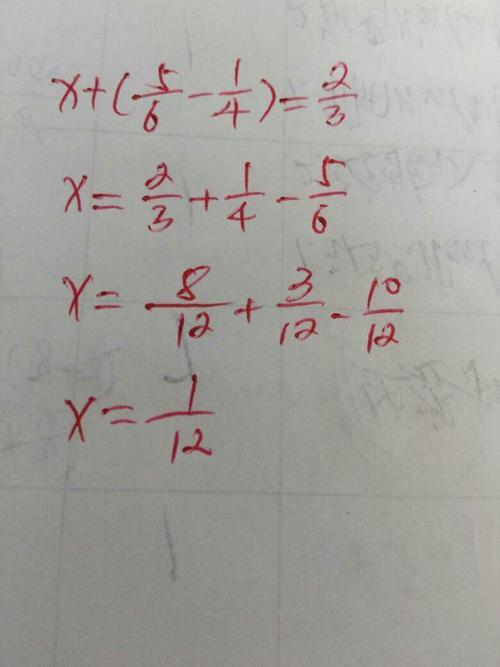 x+(5/6-1/4)=2/3
x=2/3+1/4-5/6
x=8/12+3/12-10/12
x=1/12